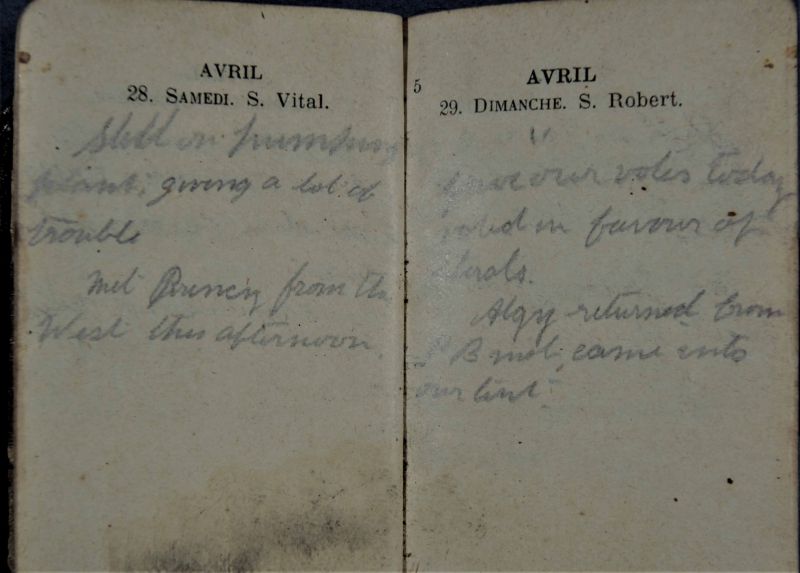 AVRIL
28. SAMEDI. S. Vital.
Still on pumping
plant, giving a lot of
trouble
Met from the
West this afternoon.
5
AVRIL
29. DIMANCHE. S. Robert.
"
our votes today
in favour of
Algy returned from
came into
our tent.